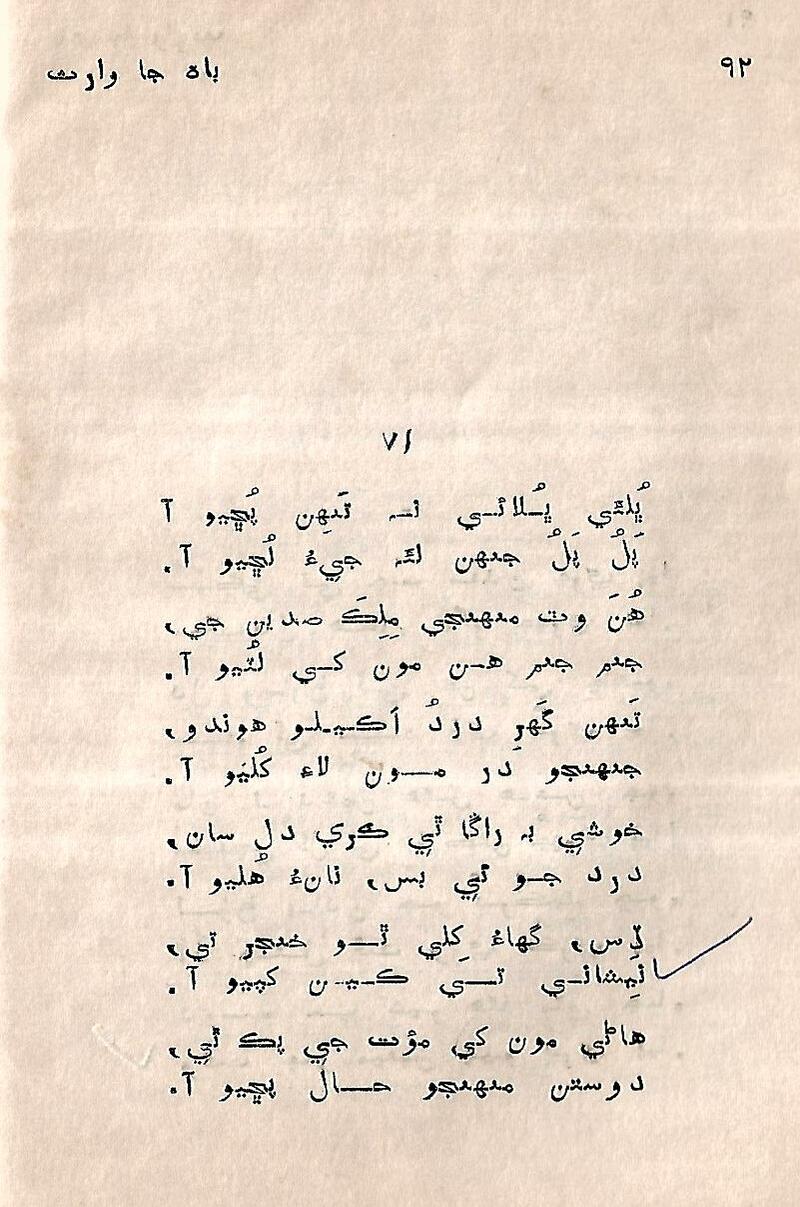 ٩٢
باهه جا وارث
٧١
ڀُلئي ڀُلائي نہ تَنهن پُڇيو آ
پَلُ پَلُ جنهن لئہ جيءُ لُڇيو آ.
هُنَ وٽ منهنجي مِلِڪَ صدين جي،
جنم جنم هن مون کي لُٽيو آ.
تَنهن گَهرِ دردُ اَڪيلو هوندو،
جنهنجو دَر مون لاءِ کُليَو آ.
خوشي بہ راڱا ٿي ڪري دل سان،
درد جو ئي بس، نانءُ هُليو آ.
ڏِس، گهاءُ کِلي ٿو خنجر تي،
نيشاني تي ڪيئن کپيو آ.
هاڻي مون کي مؤت جي پڪ ٿي،
دوستن منهنجو حال پڇيو آ.